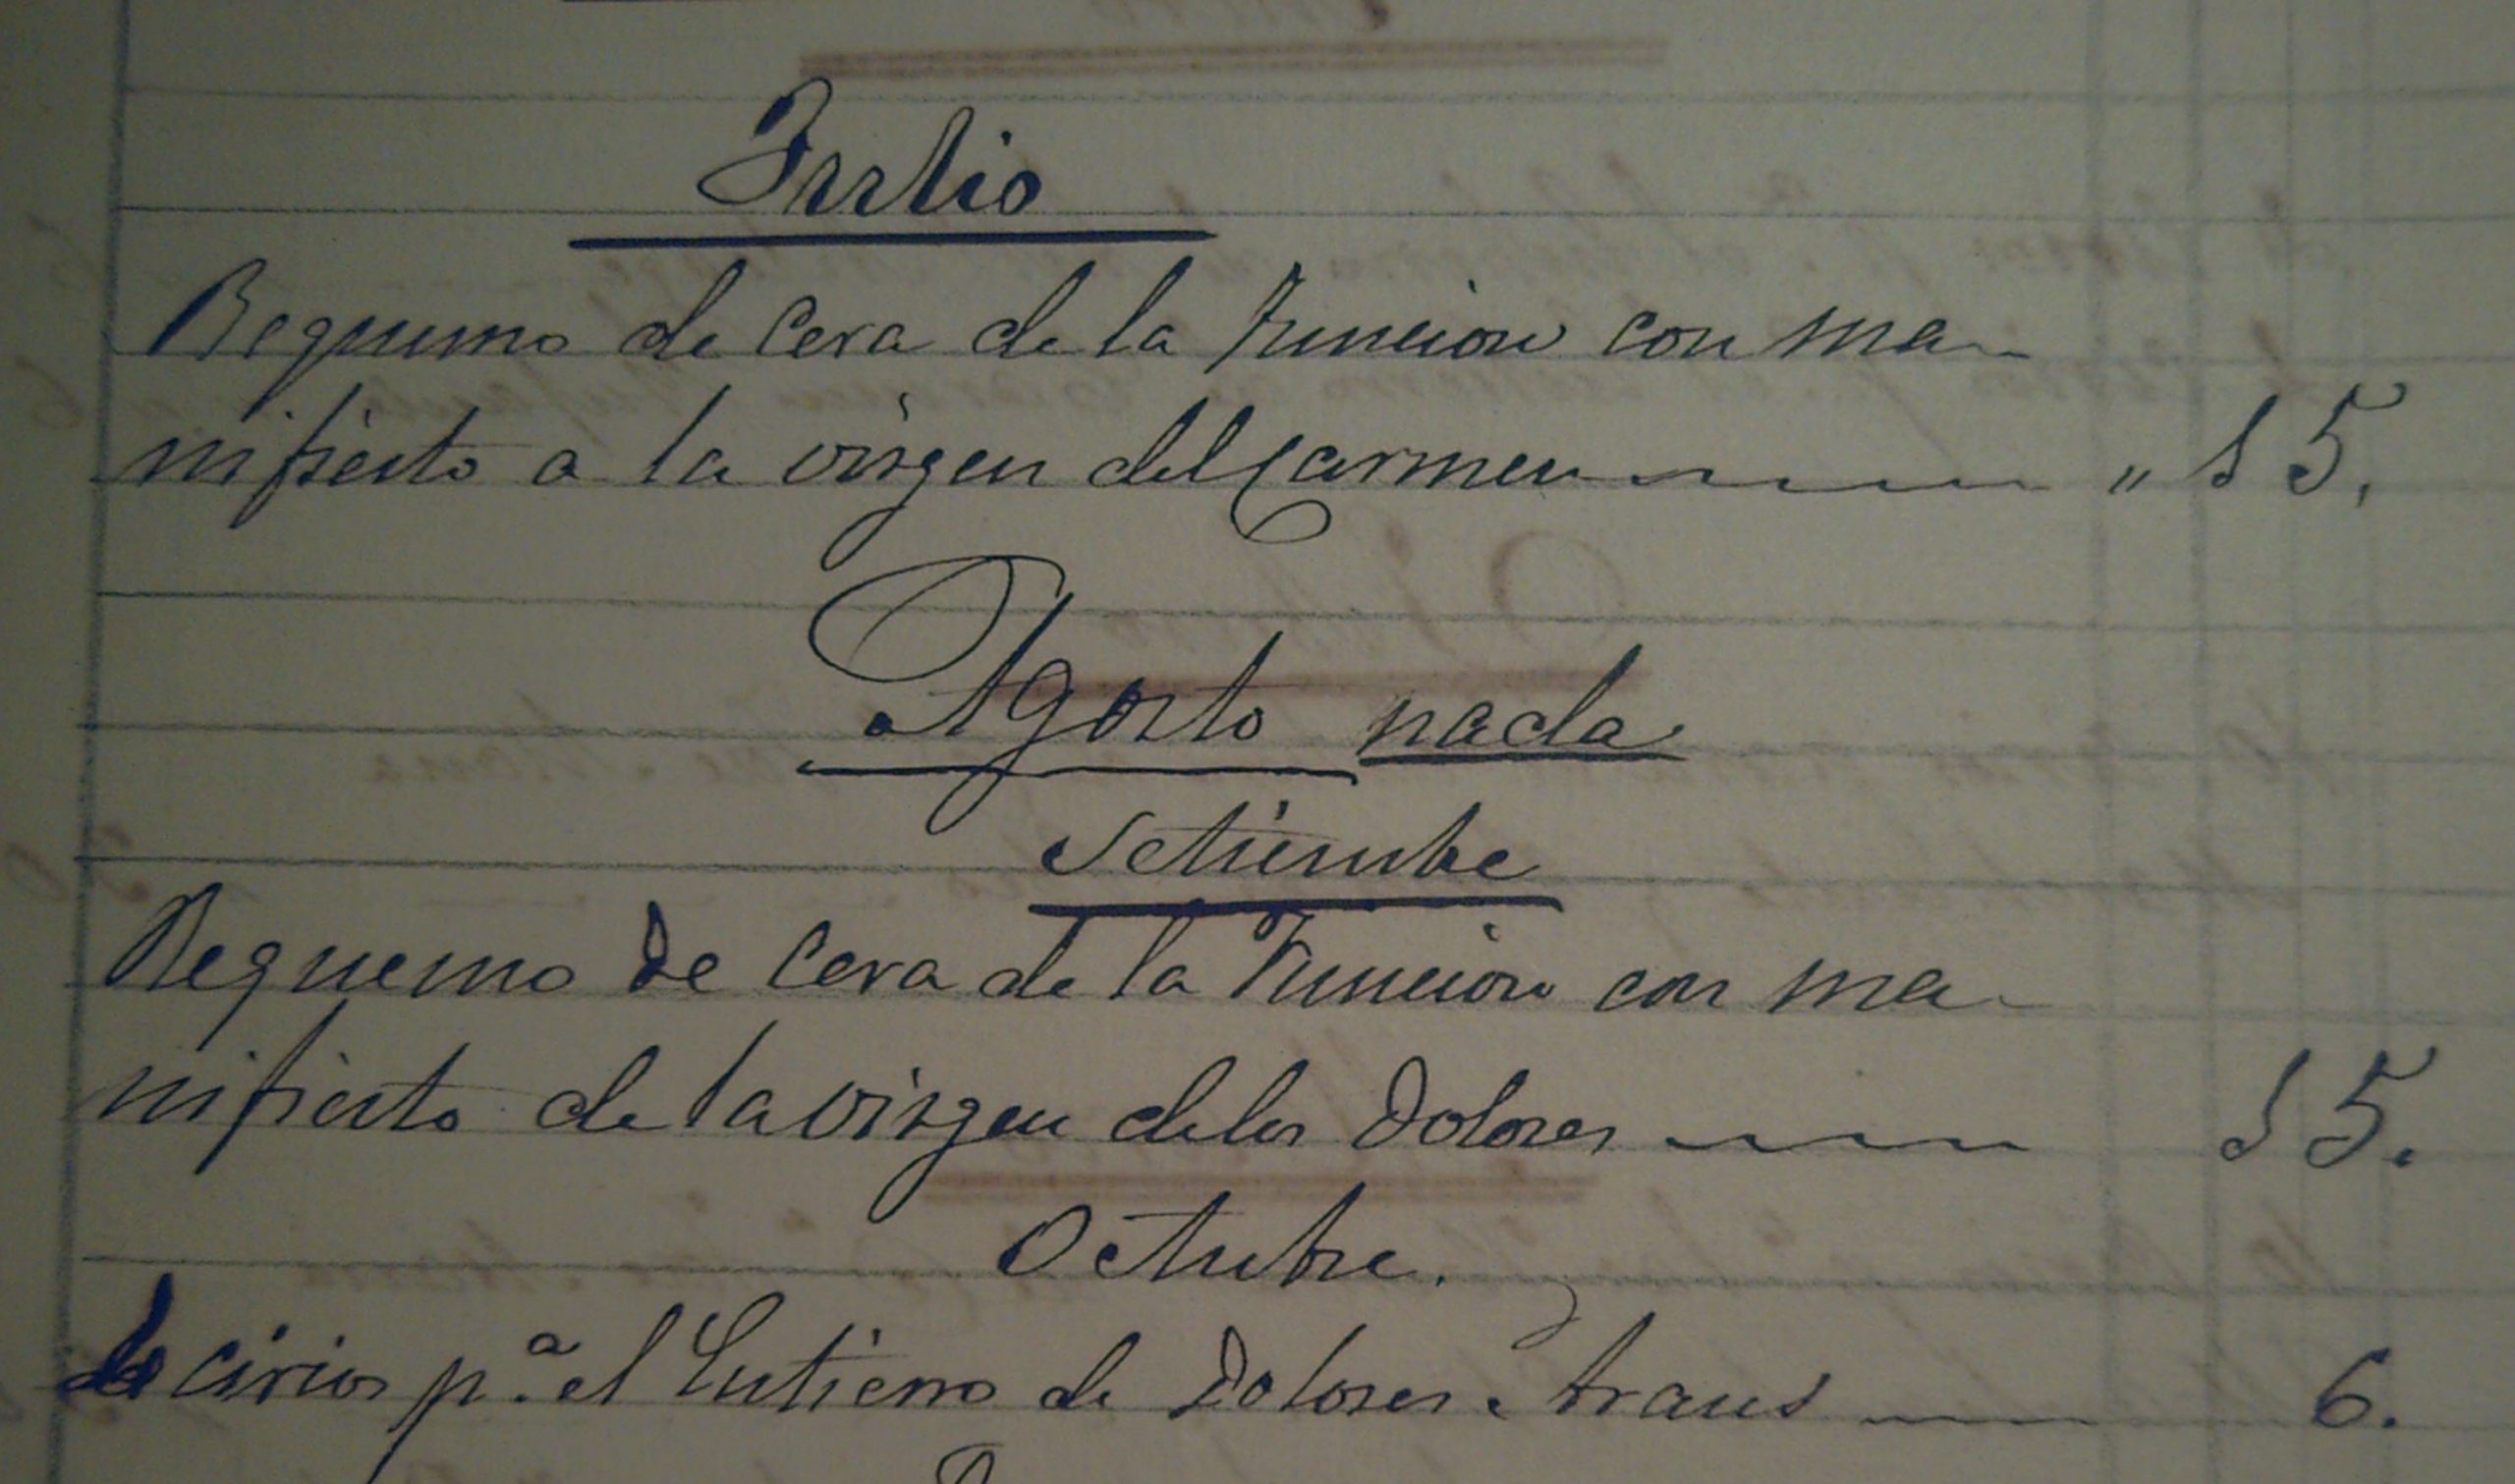 Julio
Requemo de cera de la funcion con ma-
nifiesto a la virgen del Carmen " 15.
Agosto nada
Setiembre
Requemo de cera de la funcion con ma-
nifiesto de la virgen de los Dolores 15.
Octubre.
cirios p.ª el Entierro de Dolores Araus 6.